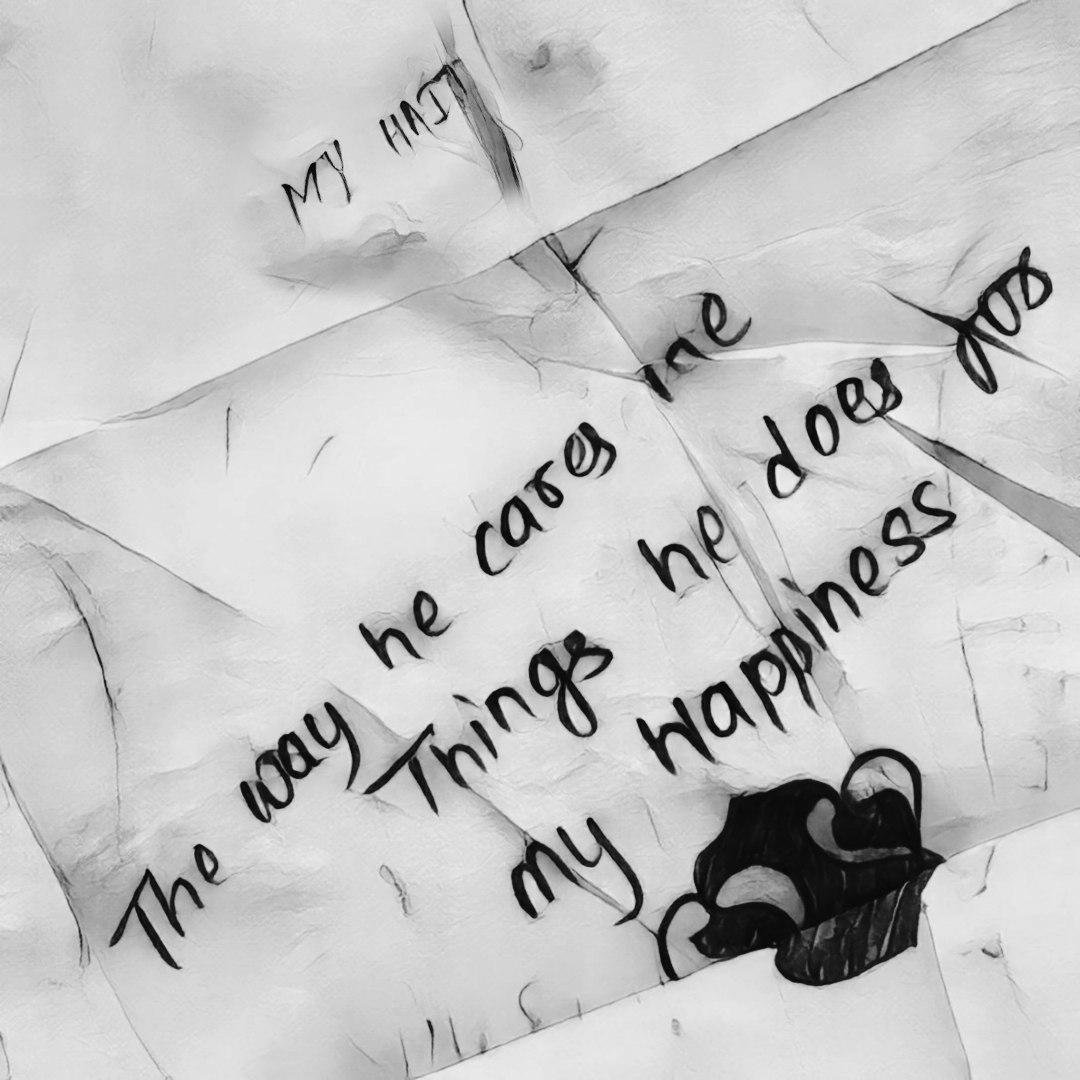 MY HAI
The way he cares me
Things he does for
my Happiness